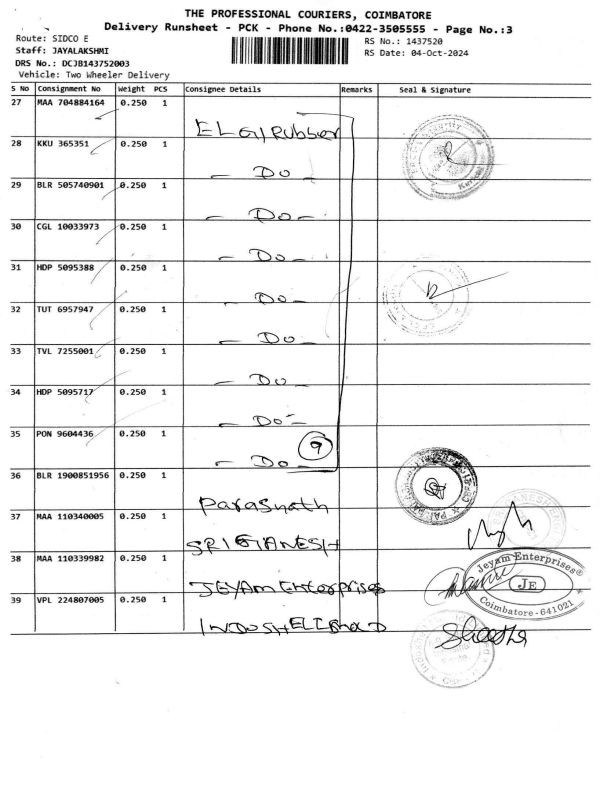 THE PROFESSIONAL COURIERS, COIMBATORE
Delivery Runsheet - PCK - Phone No.:0422-3505555 - Page No.:3
Route: SIDCO E RS No.: 1437520
Staff: JAYALAKSHMI RS Date: 04-Oct-2024
DRS No.: DCJB143752003
Vehicle: Two Wheeler Delivery
S No Consignment No Weight PCS Consignee Details Remarks Seal & Signature
27 MAA 704884164 0.250 1 ELGI Rubber
28 KKU 365351 0.250 1 - Do -
29 BLR 505740901 0.250 1 - Do -
30 CGL 10033973 0.250 1 - Do -
31 HDP 5095388 0.250 1 - Do -
32 TUT 6957947 0.250 1 - Do -
33 TVL 7255001 0.250 1 - Do
34 HDP 5095717 0.250 1 - Do -
35 PON 9604436 0.250 1 - Do - 9
36 BLR 1900851956 0.250 1 Parasnath
37 MAA 110340005 0.250 1 SRI GANESH
38 MAA 110339982 0.250 1 JEYAM Enterprises
Jeyam Enterprises®
JE
Coimbatore - 641021
39 VPL 224807005 0.250 1